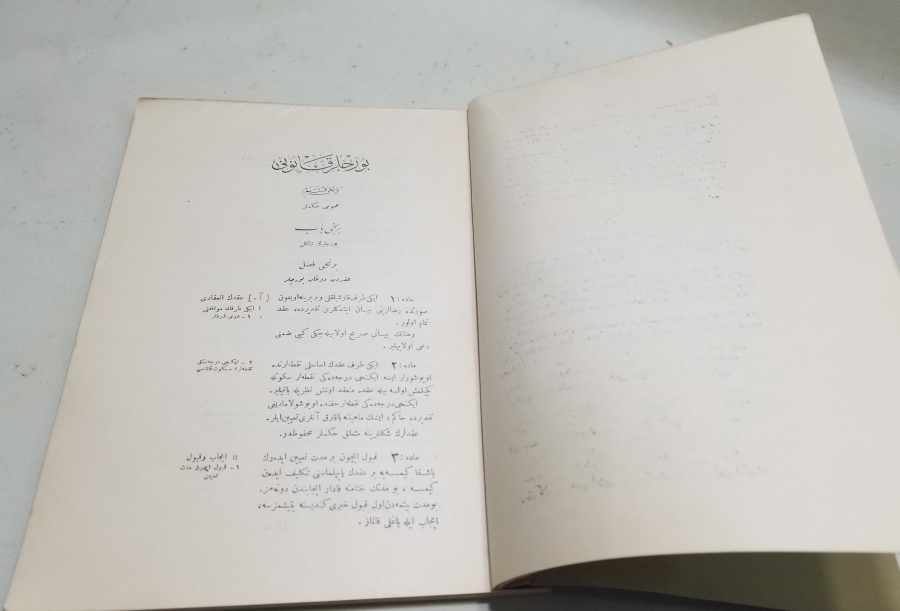 بورجلر قانونی
برنجی قسم
عمومی حكملر
برنجی باب
بورجلرك تشكلی
برنجی فصل
عقددن دوغان بورجلر
[ آ . ] عقدك انعقادی
I ایكی طرفك موافقتی
ماده : ١ ایكی طرف قارشیلقلی و بربرینه اویغون
صورتده رضالرینی بیان ایتدكلری تقدیرده، عقد
تمام اولور .
رضانك بیانی صریح اولابیله‌جكی كبی ضمنی
دخی اولابیلیر .
٢ - ایكنجی درجه‌ده‌كی
ماده : ٢ ایكی طرف عقدك اساسلی نقطه‌لرنده
اویوشورلر ایسه ایكنجی درجه‌ده‌كی نقطه‌لر سكوتله
كچیلمش اولسه بیله عقد، منعقد اولمش نظریله باقیلیر.
ایكنجی درجه‌ده‌كی نقطه‌لر حقنده اویوشولامادیغی
تقدیرده حاكم، ایشك ماهیتنه باقارق آنلری تعیین ایلر.
عقدلرك شكللرینه متعلق حكملر محفوظدر.
II ایجاب وقبول
١ - قبول ایچون مدت
تعیینی
ماده : ٣ قبول ایچون بر مدت تعیین ایده‌رك
باشقا كیمسه‌یه بر عقدك یاپیلماسنی تكلیف ایدن
كیمسه ، بو مدتك ختامنه قادار ایجابندن دونه‌مز.
بو مدت بیتمه‌دن اول قبول خبری كندیسنه یتیشمزسه،
ایجاب ایله باغلی قالماز .